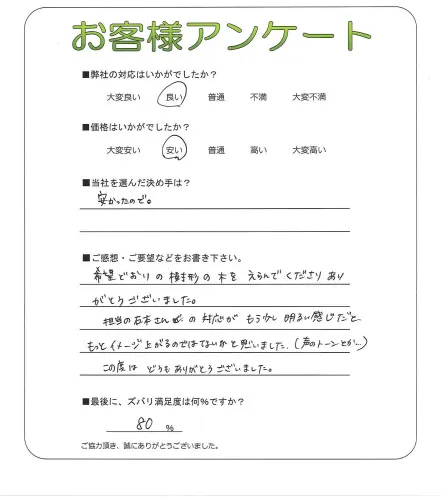 お客様アンケート
■弊社の対応はいかがでしたか？
大変良い 良い 普通 不満 大変不満
■価格はいかがでしたか？
大変安い 安い 普通 高い 大変高い
■当社を選んだ決め手は？
安かったので。
■ご感想・ご要望などをお書き下さい。
希望どおりの樹形の木をえらんでくださりあり
がとうございました。
担当の石本さんの対応がもう少し明るい感じだと
もっとイメージ上がるのではないかと思いました。(声のトーンとか…)
この度はどうもありがとうございました。
■最後に、ズバリ満足度は何％ですか？
80 %
ご協力頂き、誠にありがとうございました。